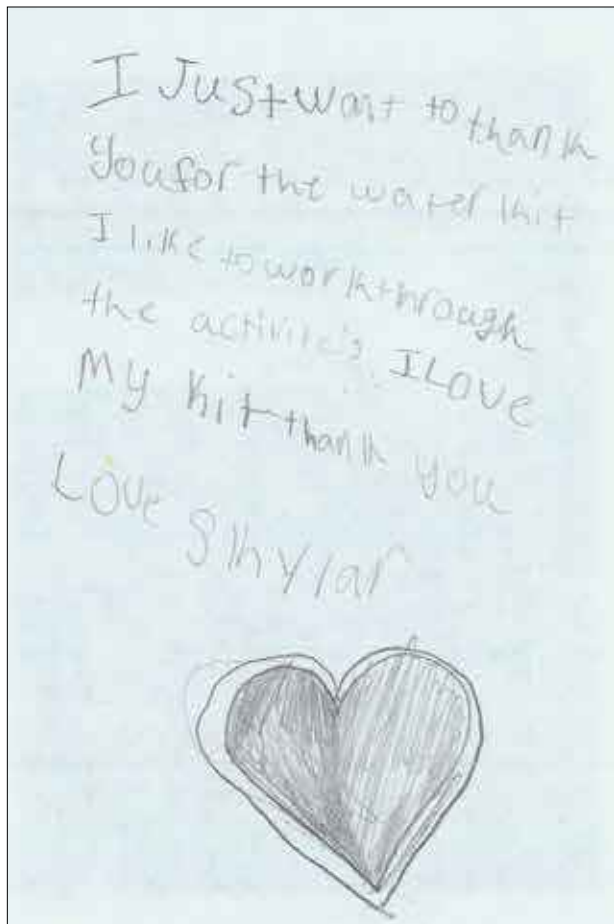 I Just want to thank
you for the water kit
I like to work through
the activite's I Love
My kit thank you
Love Skylar